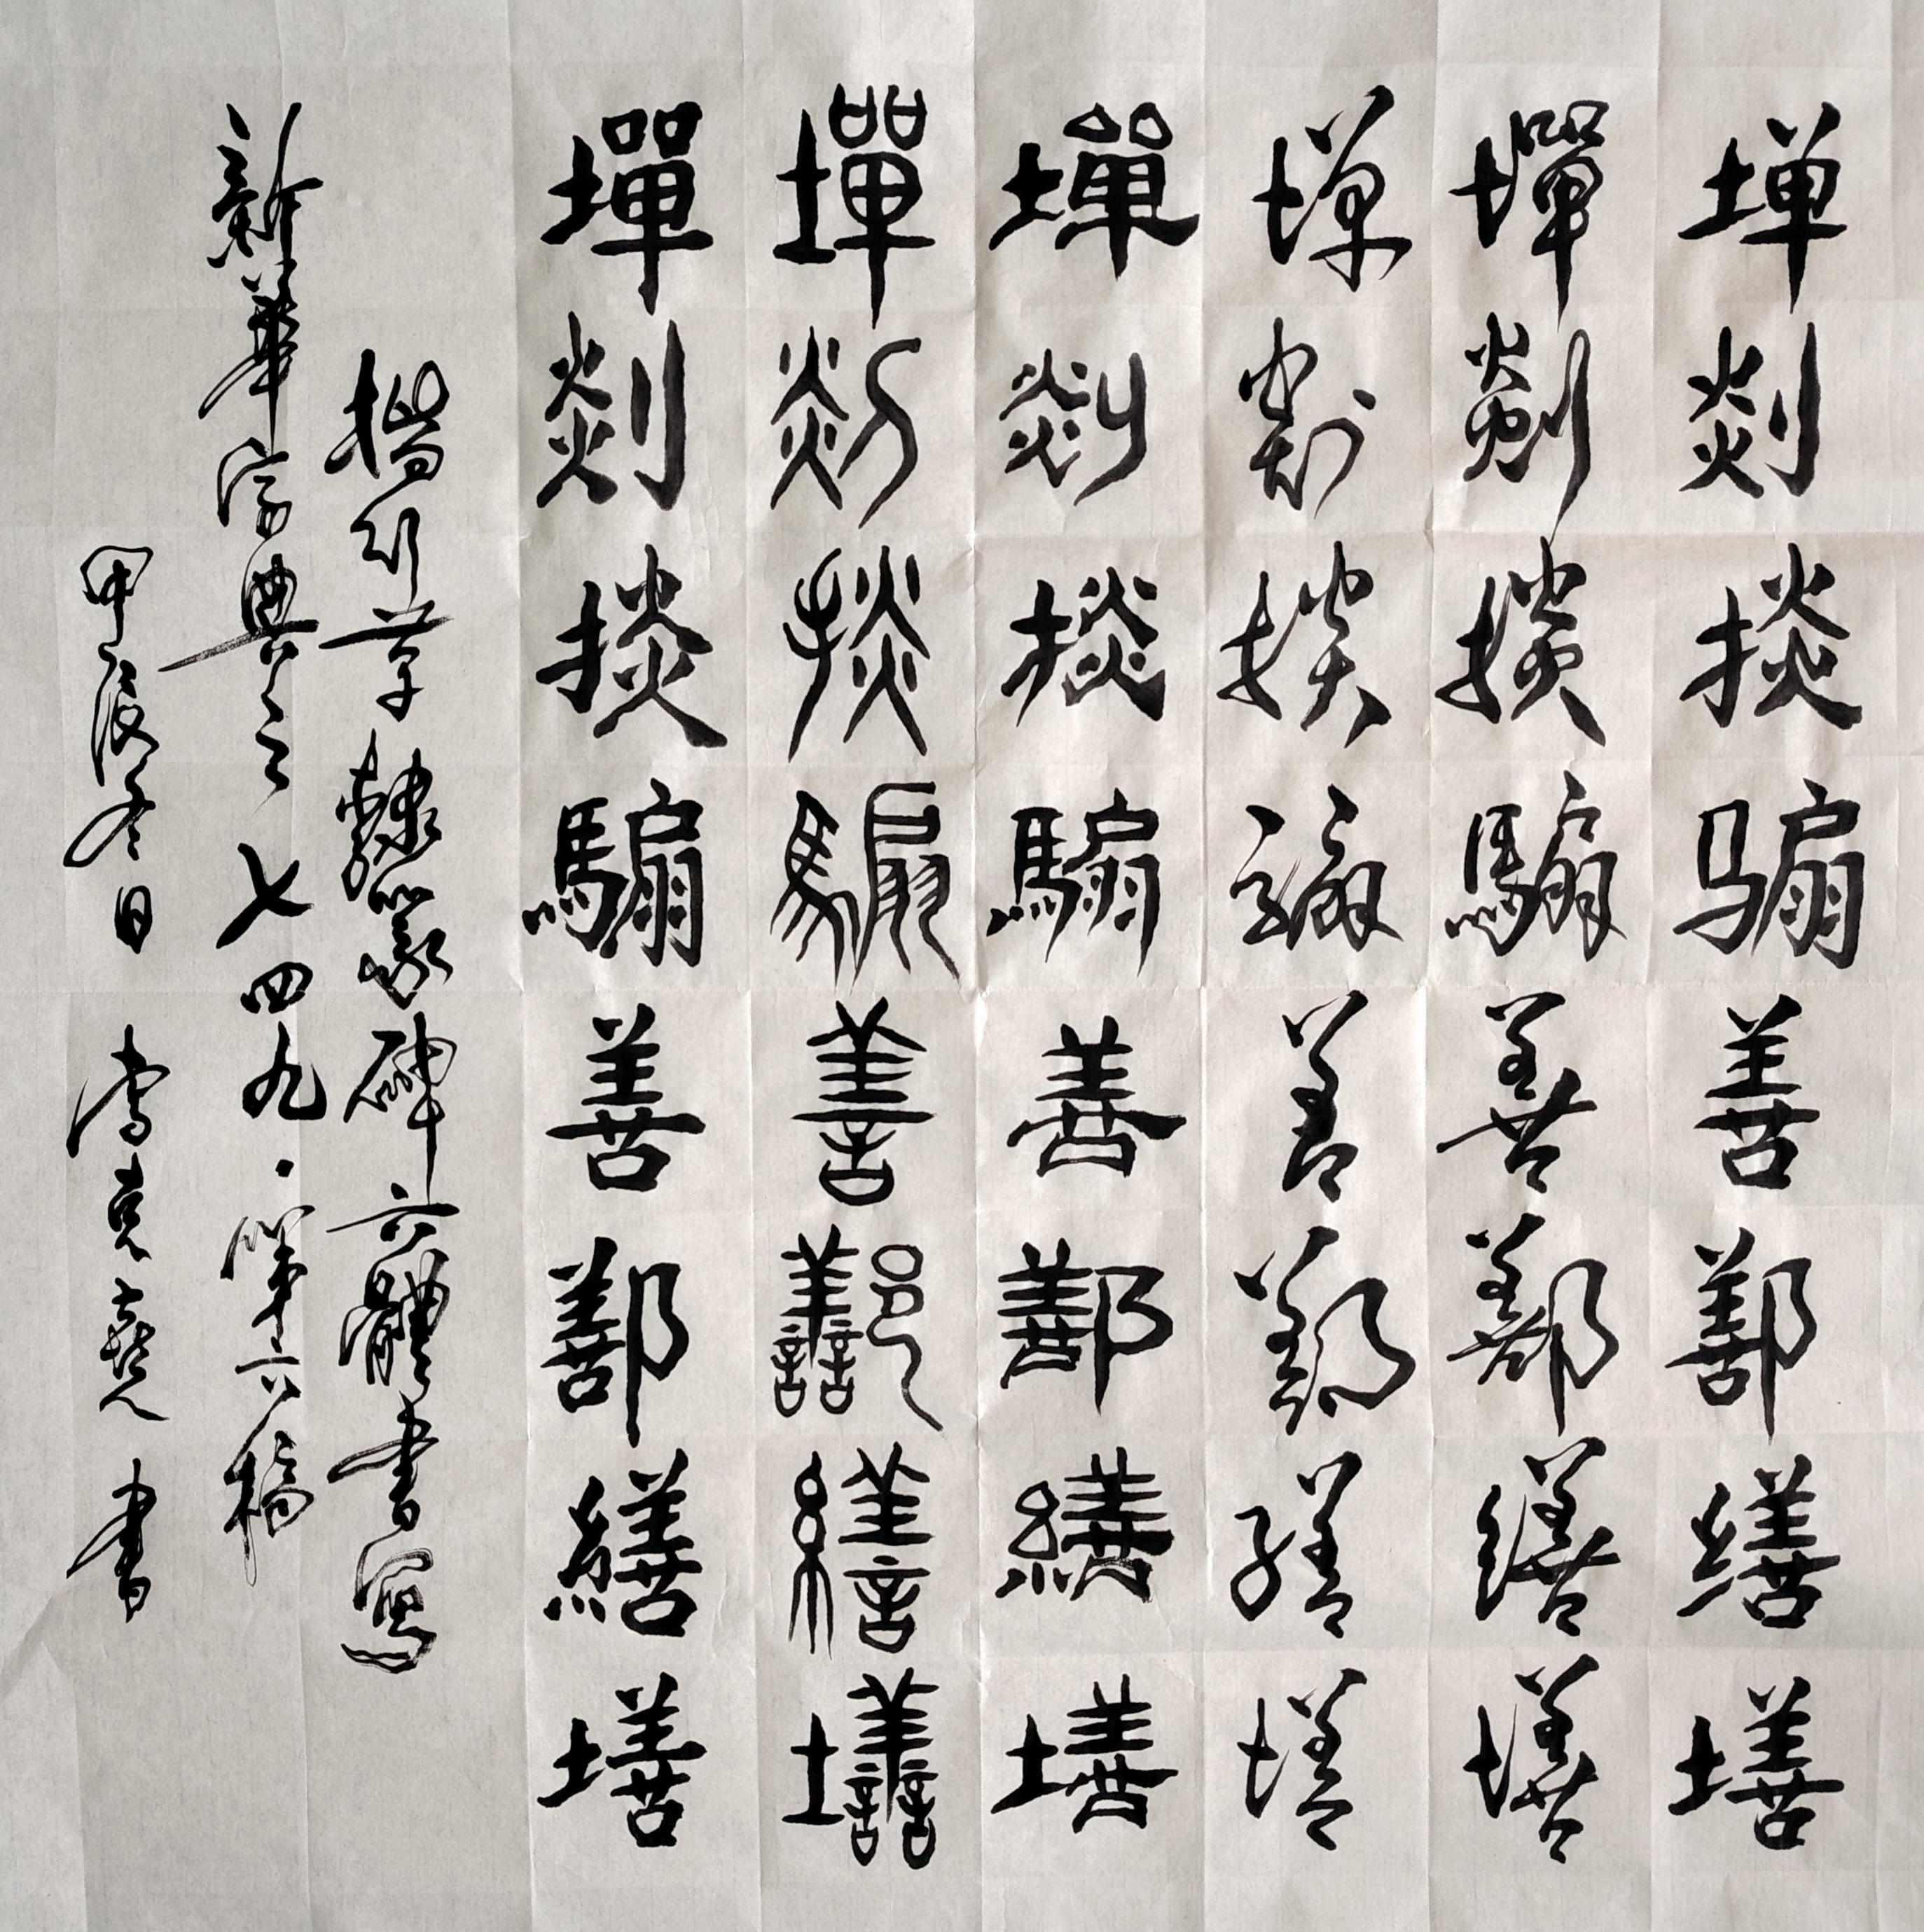 墠剡掞骟善鄯缮墡
墠剡掞騸善鄯繕墡
墠剡掞騸善鄯繕墡
墠剡掞騸善鄯繕墡
墠剡掞騸善鄯繕墡
墠剡掞騸善鄯繕墡
楷行草隸篆碑六體書寫
新華字典之七四九·第六稿
甲辰冬日 李克堯 书